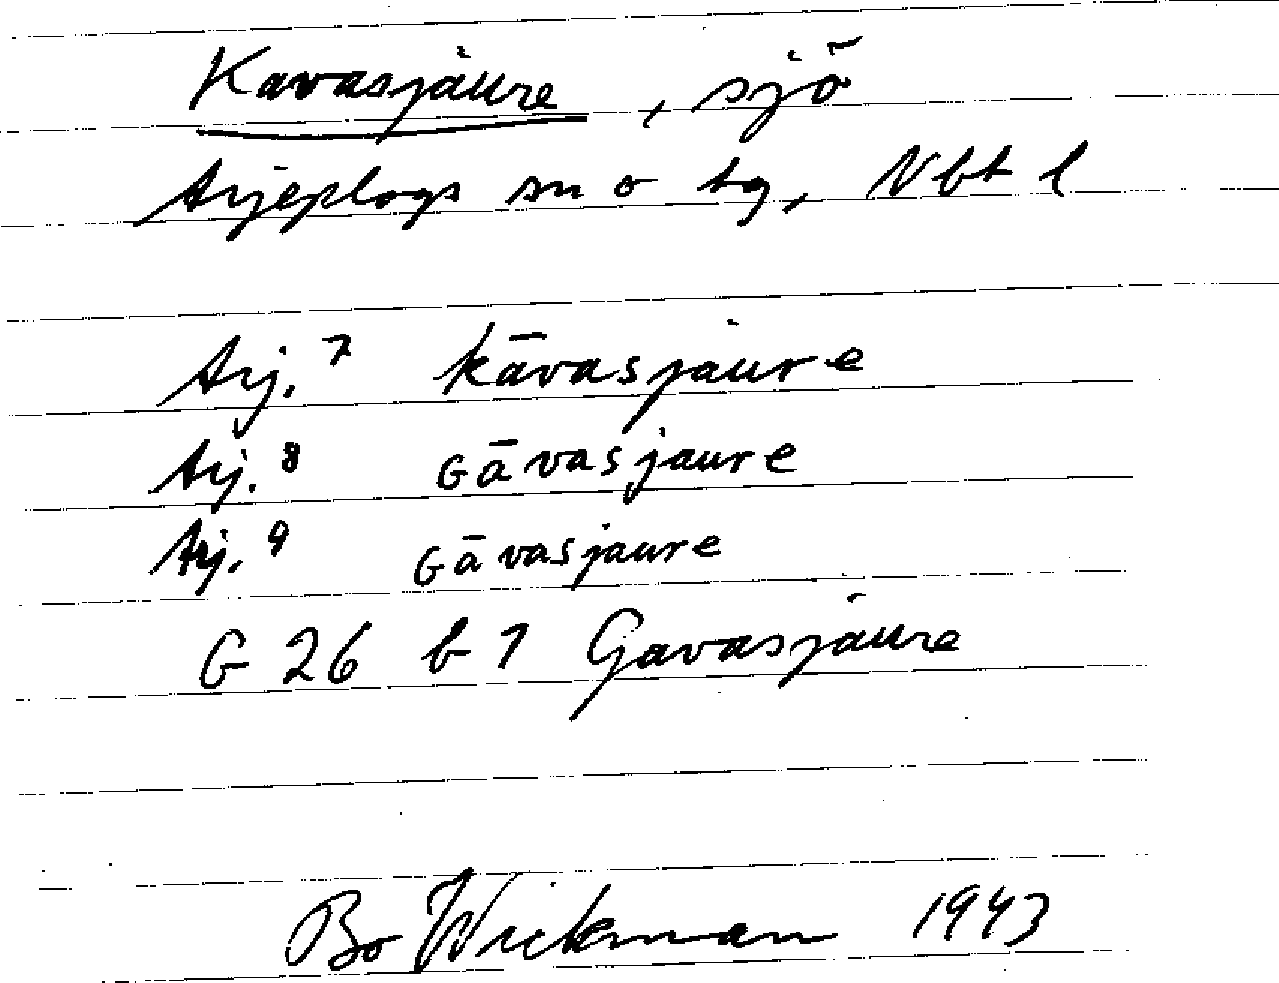 Kavasjaure, sjö
Arjeplogs sn o tg, Nbt l
Arj.⁷ kāvasjaure
Arj.⁸ ɢāvasjaure
Arj.⁹ ɢāvasjaure
G 26 b 7 Gavasjaure
Bo Wickman 1943